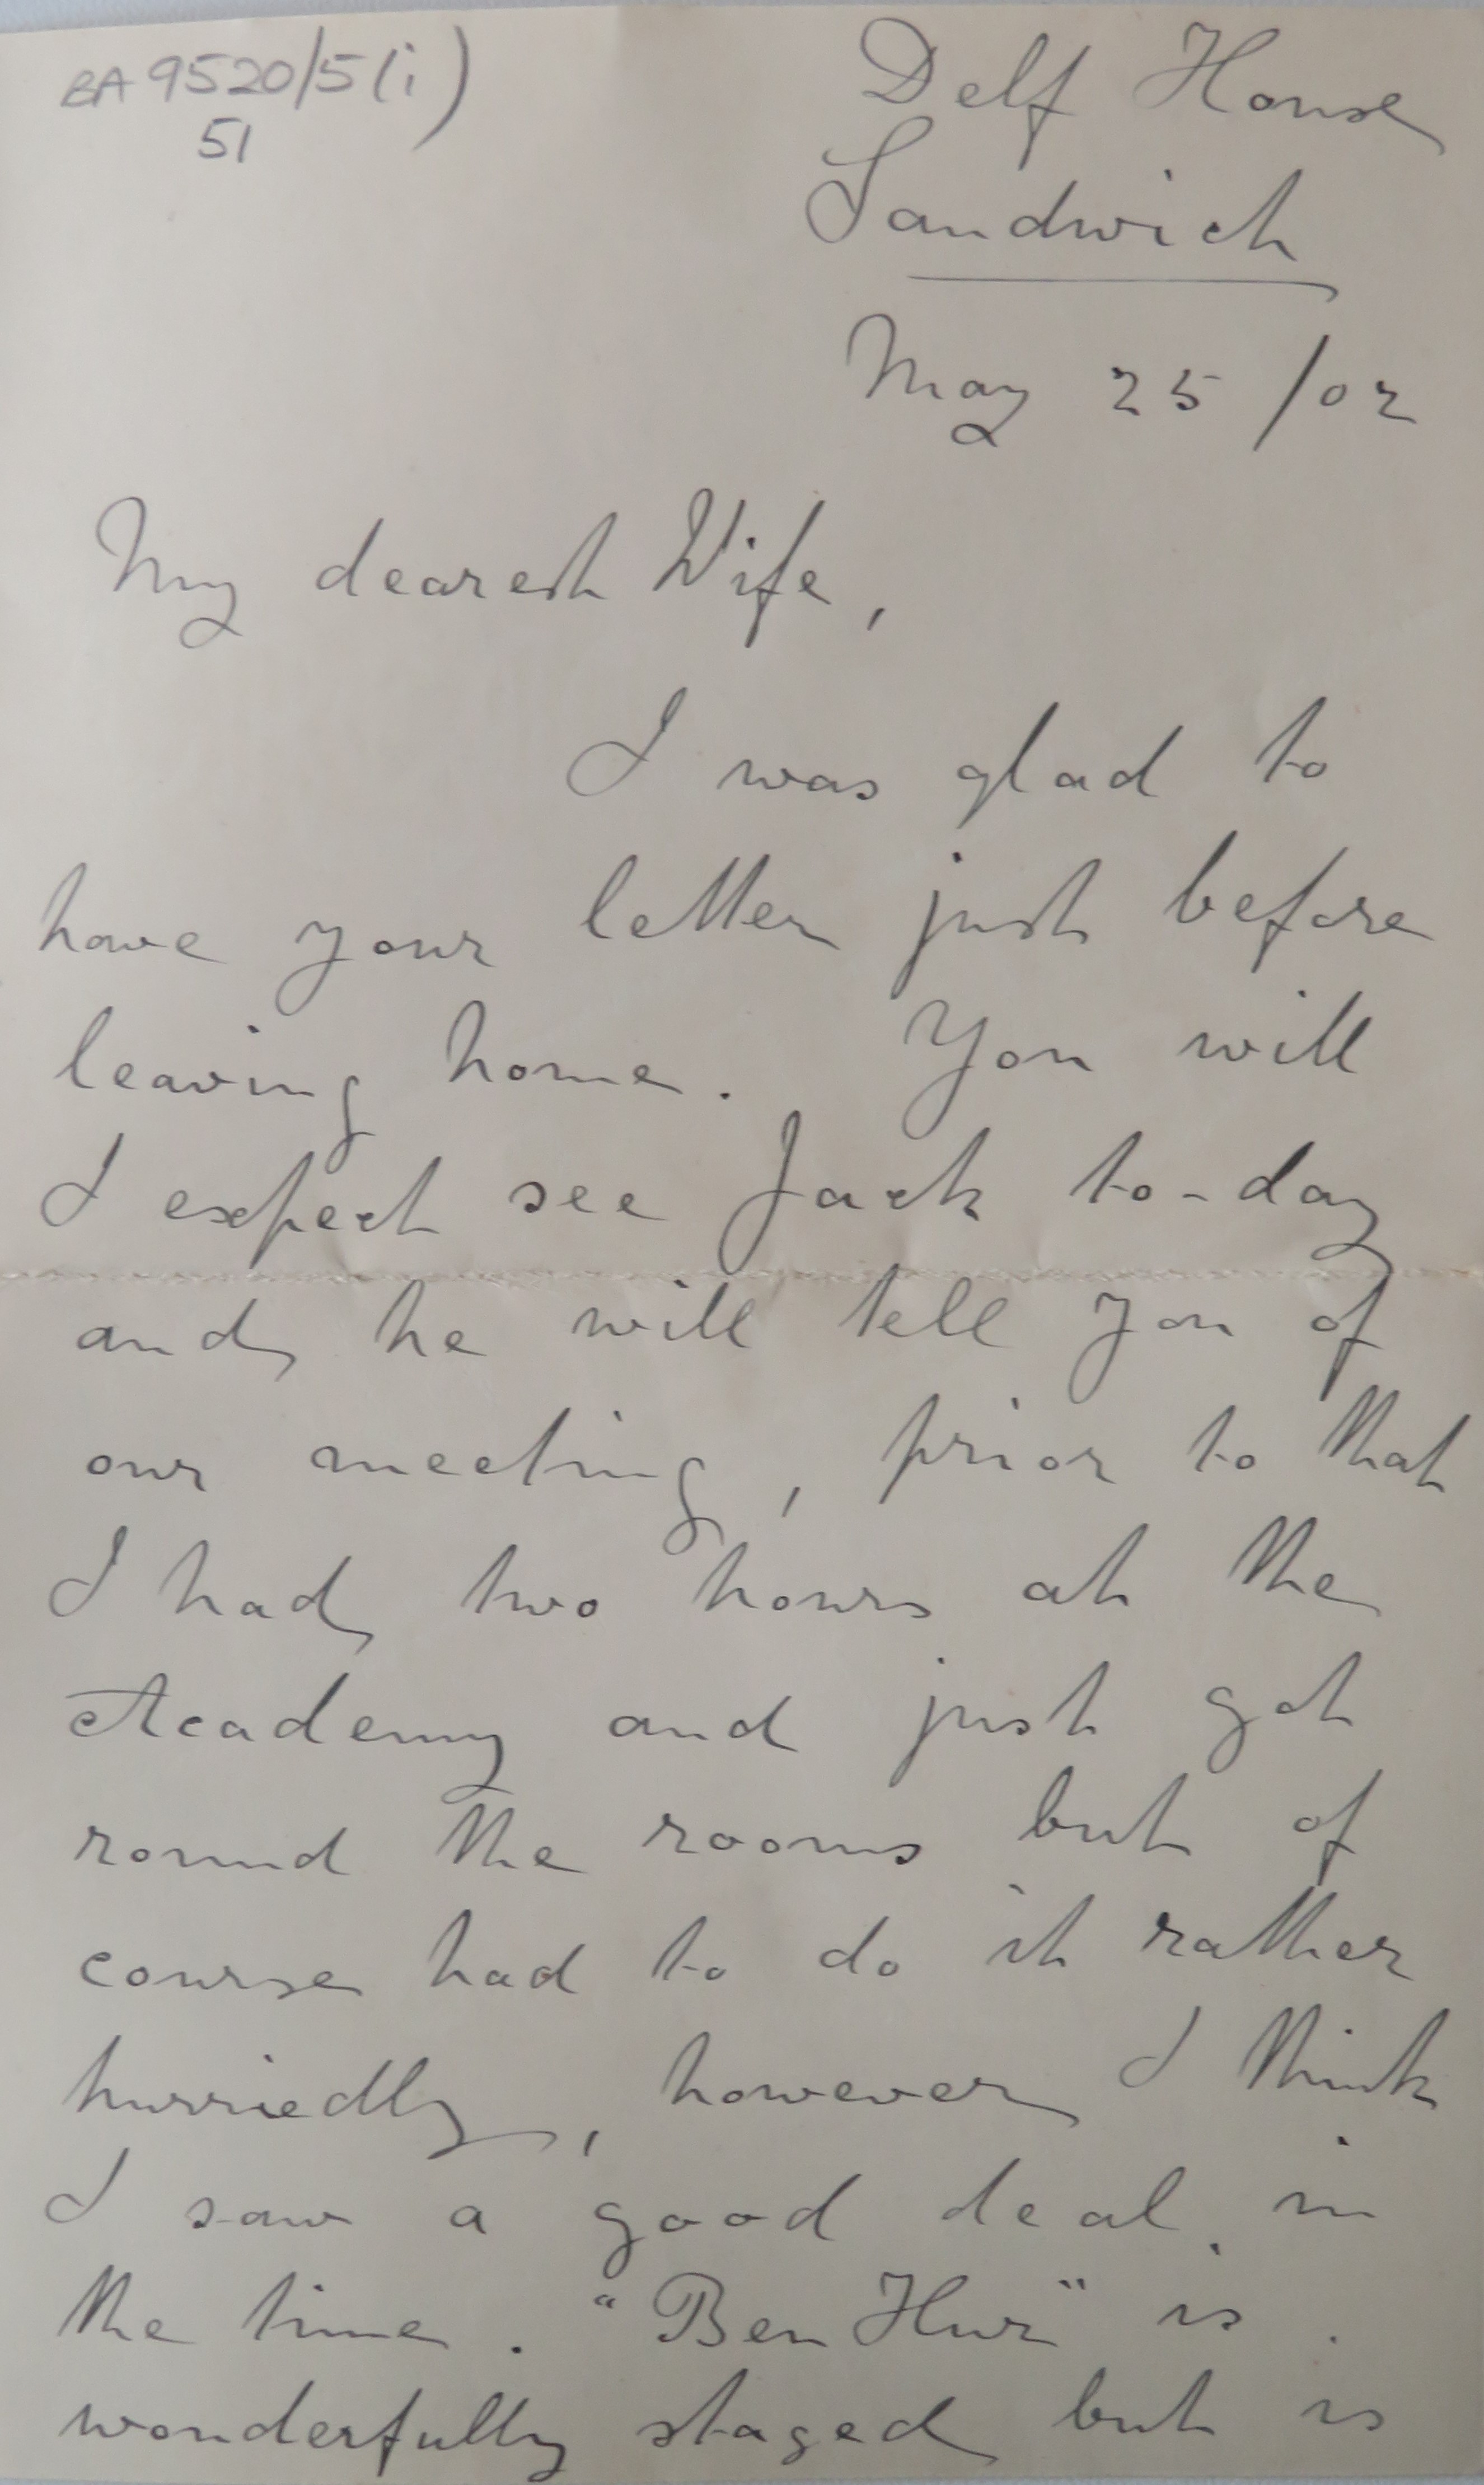 BA 9520/5(i)
51
Delf House
Sandwich
May 25/02
My dearest Wife,
I was glad to
have your letter just before
leaving home. You will
I expect see Jack to-day
and he will tell you of
our meeting, prior to that
I had two hours at the
Academy and just got
round the rooms but of
course had to do it rather
hurriedly, however I think
I saw a good deal in
the time. "Ben Hur" is
wonderfully staged but is